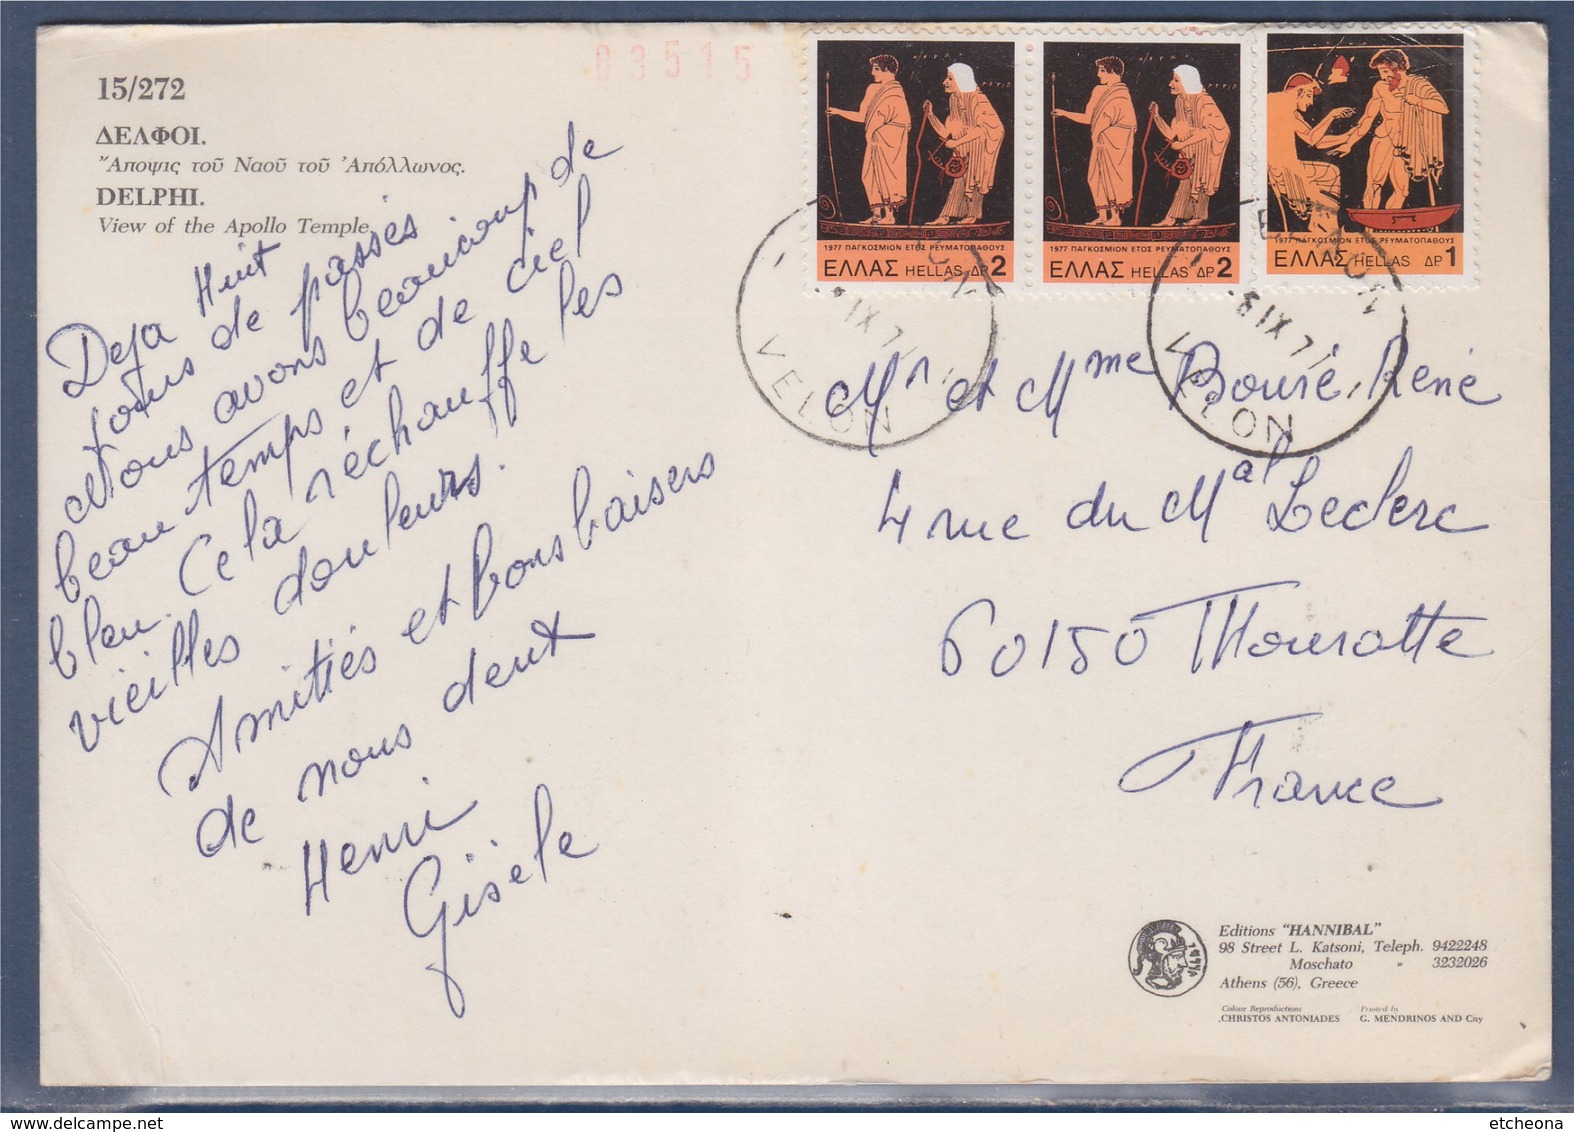 03515
15/272
ΔΕΛΦΟΙ.
Ἄποψις τοῦ Ναοῦ τοῦ Ἀπόλλωνος.
DELPHI.
View of the Apollo Temple.
Deja Huit
jours de passés
Nous avons beaucoup de
beau temps et de ciel
bleu. Cela réchauffe les
vieilles douleurs.
Amitiés et bons baisers
de nous deux
Henri
Gisèle
1977 ΠΑΓΚΟΣΜΙΟΝ ΕΤΟΣ ΡΕΥΜΑΤΟΠΑΘΟΥΣ
ΕΛΛΑΣ HELLAS ΔΡ 2
1977 ΠΑΓΚΟΣΜΙΟΝ ΕΤΟΣ ΡΕΥΜΑΤΟΠΑΘΟΥΣ
ΕΛΛΑΣ HELLAS ΔΡ 2
1977 ΠΑΓΚΟΣΜΙΟΝ ΕΤΟΣ ΡΕΥΜΑΤΟΠΑΘΟΥΣ
ΕΛΛΑΣ HELLAS ΔΡ 1
VELON
VELON
Mr et Mme Bouré René
4 rue du Mal Leclerc
60150 Thourotte
France
Editions "HANNIBAL"
98 Street L. Katsoni, Teleph. 9422248
Moschato " 3232026
Athens (56), Greece
Colour Reproductions Printed by
CHRISTOS ANTONIADES G. MENDRINOS AND Cny
etcheona